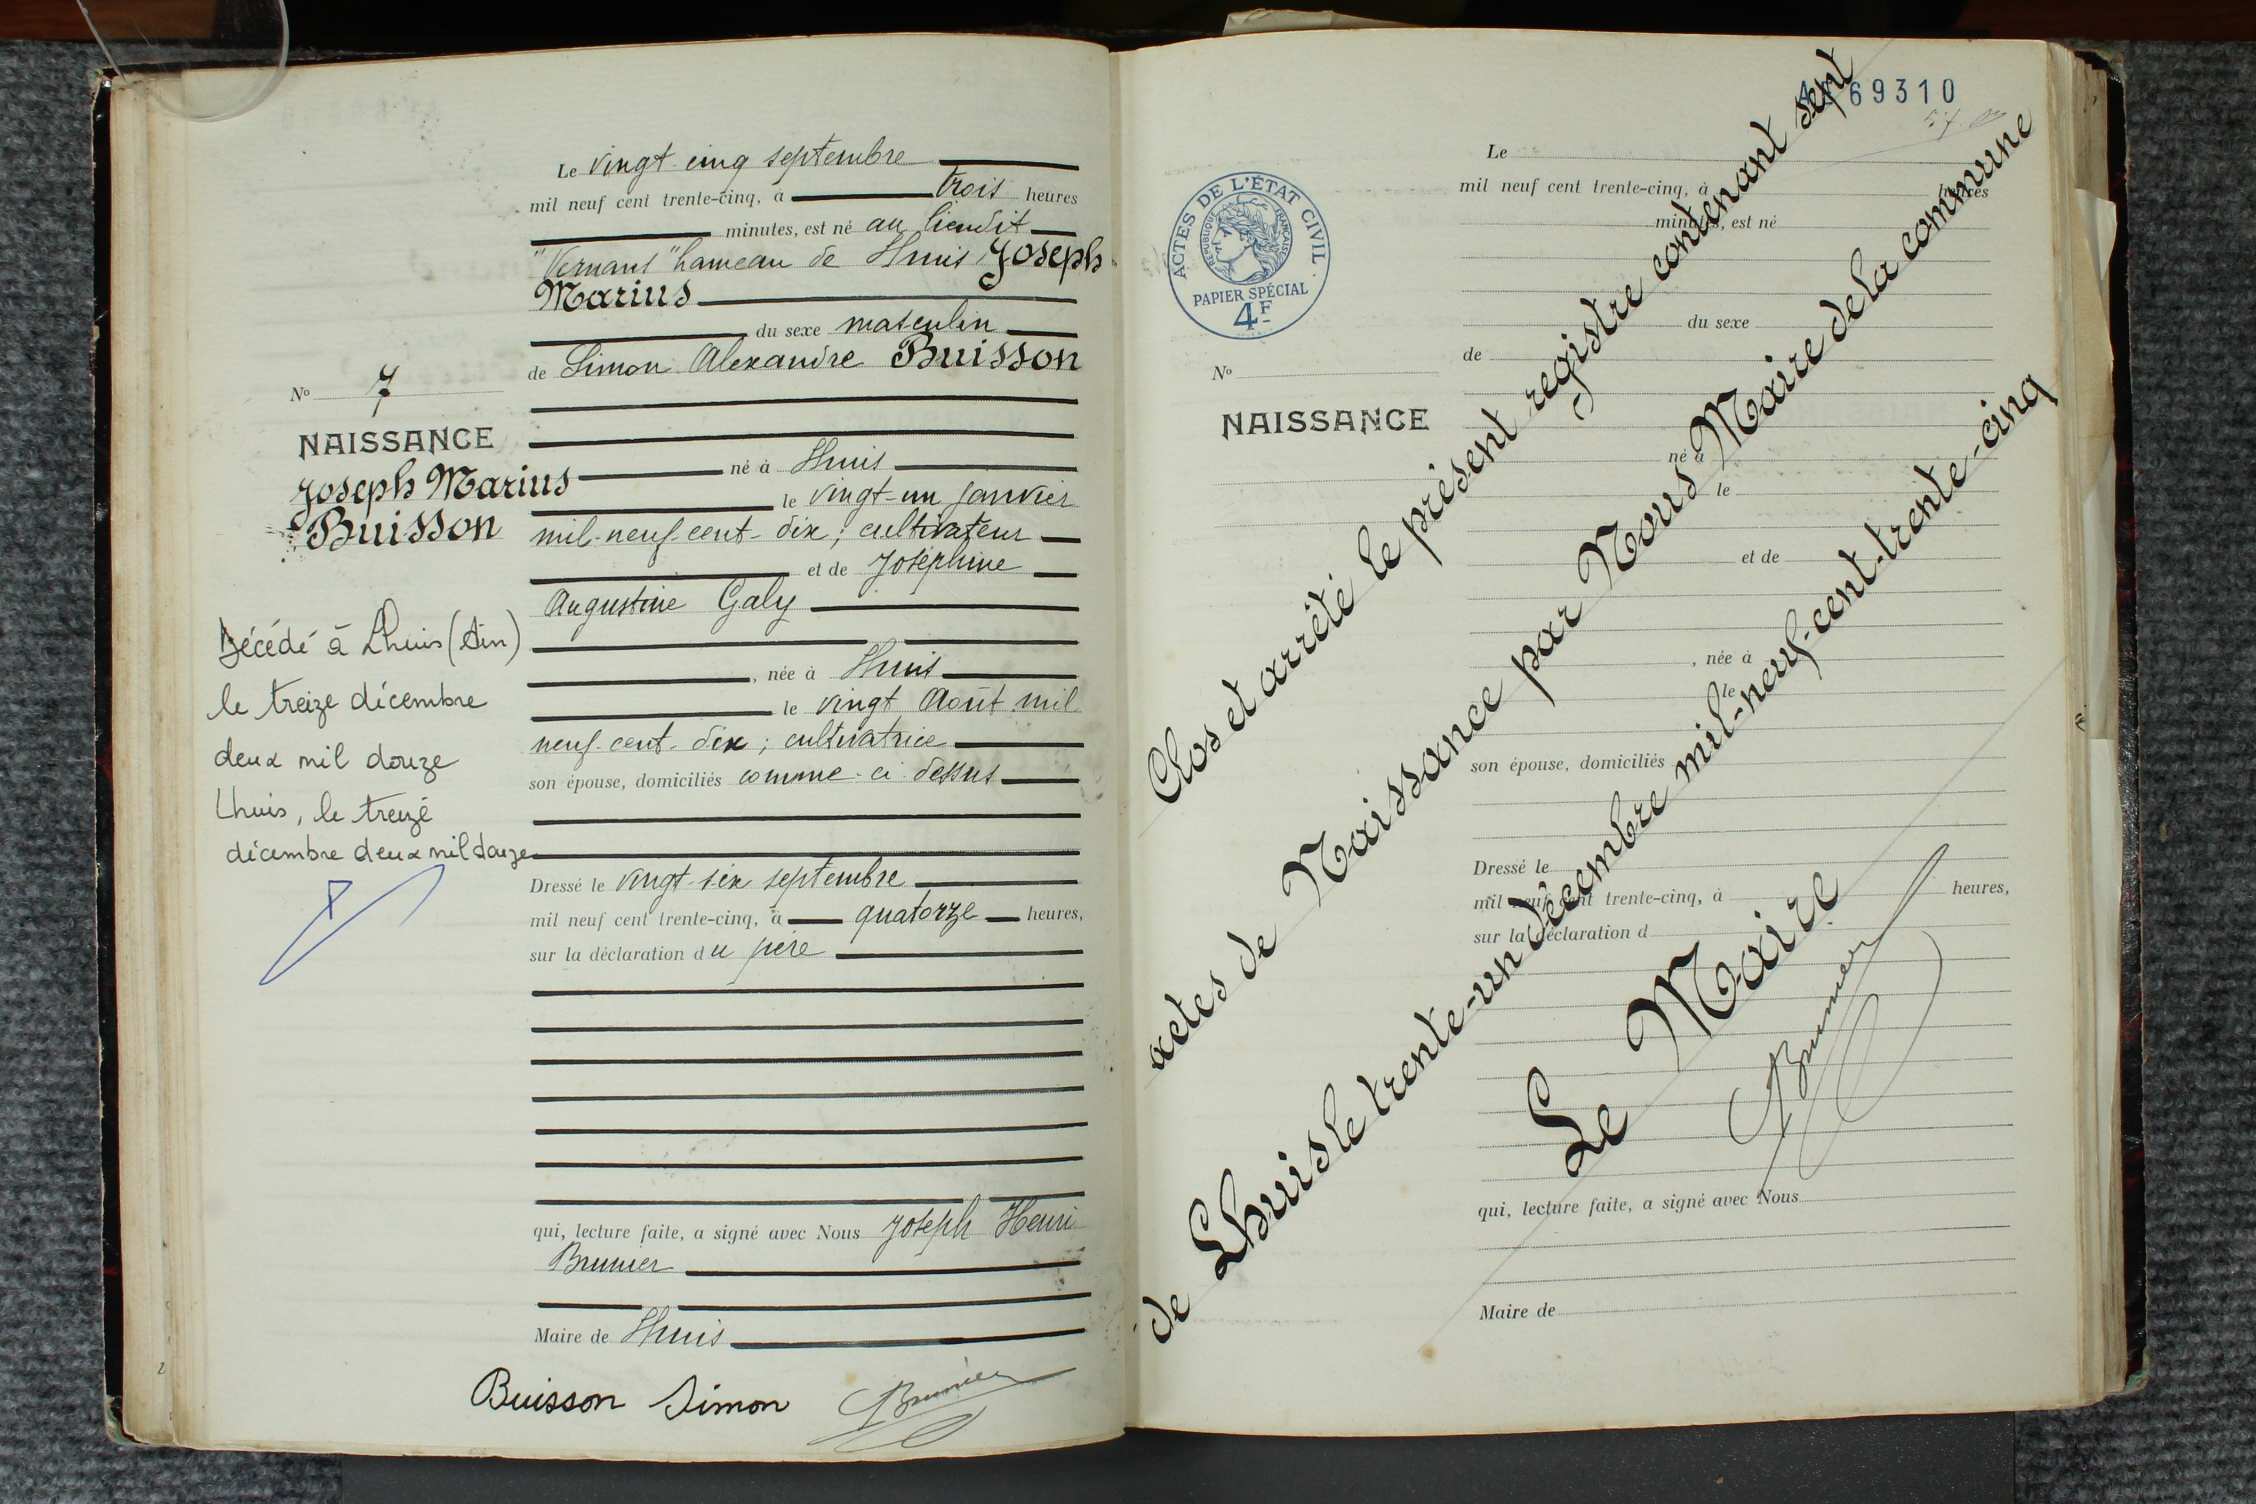 Le vingt-cinq septembre
mil neuf cent trente-cinq, à trois heures
minutes, est né au lieudit
"Vernans" hameau de Lhuis, Joseph
Marius
du sexe masculin
de Simon Alexandre Buisson
né à Lhuis
le vingt-un janvier
mil-neuf-cent-dix; cultivateur
et de Joséphine
Augustine Galy
, née à Lhuis
le vingt Août mil
neuf-cent-dix; cultivatrice
son épouse, domiciliés comme-ci-dessus
Dressé le vingt-six septembre
mil neuf cent trente-cinq, à quatorze heures,
sur la déclaration du père
qui, lecture faite, a signé avec Nous Joseph Henri
Brunier
Maire de Lhuis
Buisson Simon Brunier
No 7
NAISSANCE
Joseph Marius
Buisson
Décédé à Lhuis (Ain)
le treize décembre
deux mil douze
Lhuis, le treize
décembre deux mil douze
69310
ACTES DE L'ÉTAT CIVIL
RÉPUBLIQUE FRANÇAISE
PAPIER SPÉCIAL
4F
No
NAISSANCE
Le
mil neuf cent trente-cinq, à heures
minutes, est né
du sexe
de
né à
le
et de
, née à
le
son épouse, domiciliés
Dressé le
mil neuf cent trente-cinq, à heures,
sur la déclaration d
qui, lecture faite, a signé avec Nous
Maire de
Clos et arrêté le présent registre contenant sept
actes de Naissance par Nous Maire de la commune
de Lhuis le trente-un décembre mil-neuf-cent-trente-cinq
Le Maire
Brunier